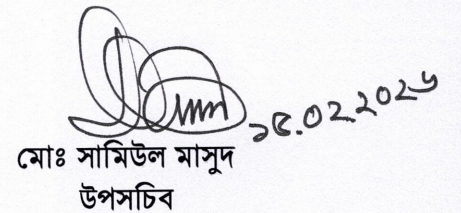 ১৫.০২.২০২৬
মোঃ সামিউল মাসুদ
উপসচিব